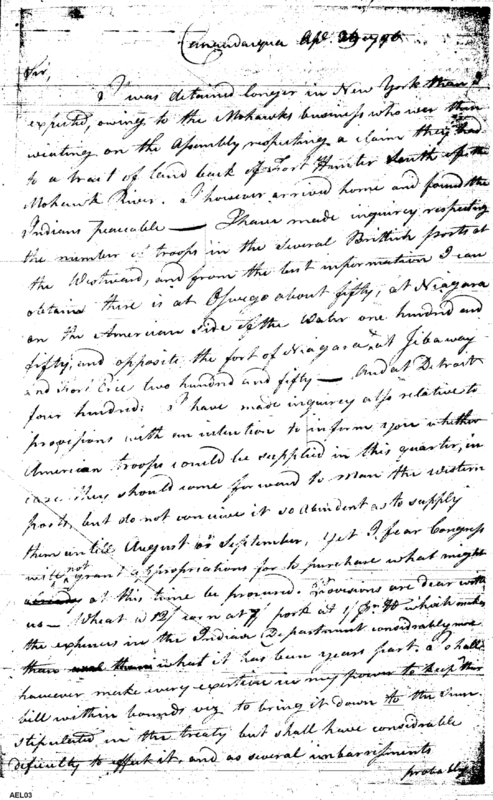 Canandarqua Apl. 1796
Sir,
I was detained longer in New York than I
expected, owing to the Mohawks business who wer then
waiting on the Assembly respecting a claim they had
to a tract of land back of Fort Hunter South of the
Mohawk River. I however arrived home and found the
Indians peaceable — I have made inquirey respecting
the number of troops in the several Brittish posts at
the Westward, and from the best information I can
obtain there is at Oswego about fifty; at Niagara
on the American Side of the water one hundred and
fifty, and opposite the fort of Niagara & at Jibaway
and Fort Erie two hundred and fifty — And at Detroit
four hundred: I have made inquirey also relative to
provisions with an intention to inform you whether
American troops could be supplied in this quarter, in
case they should come forward to man the western
posts, but do not conceive it so abundent as to supply
them untill August or September, yet I fear Congress
will not grant appropriations for to purchase what might
at this time be procured. Provisions are dear with
us — Wheat a 12/ corn at 7/ pork at 1/ which makes
the expences in the Indian Department considerably more
than what it has been years past. I shall
however make every exertion in my power to keep this
bill within bounds viz to bring it down to the sum
stipulated in the treaty but shall have considerable
dificulty to effect it, and as several imbarrissments
probably
AEL03